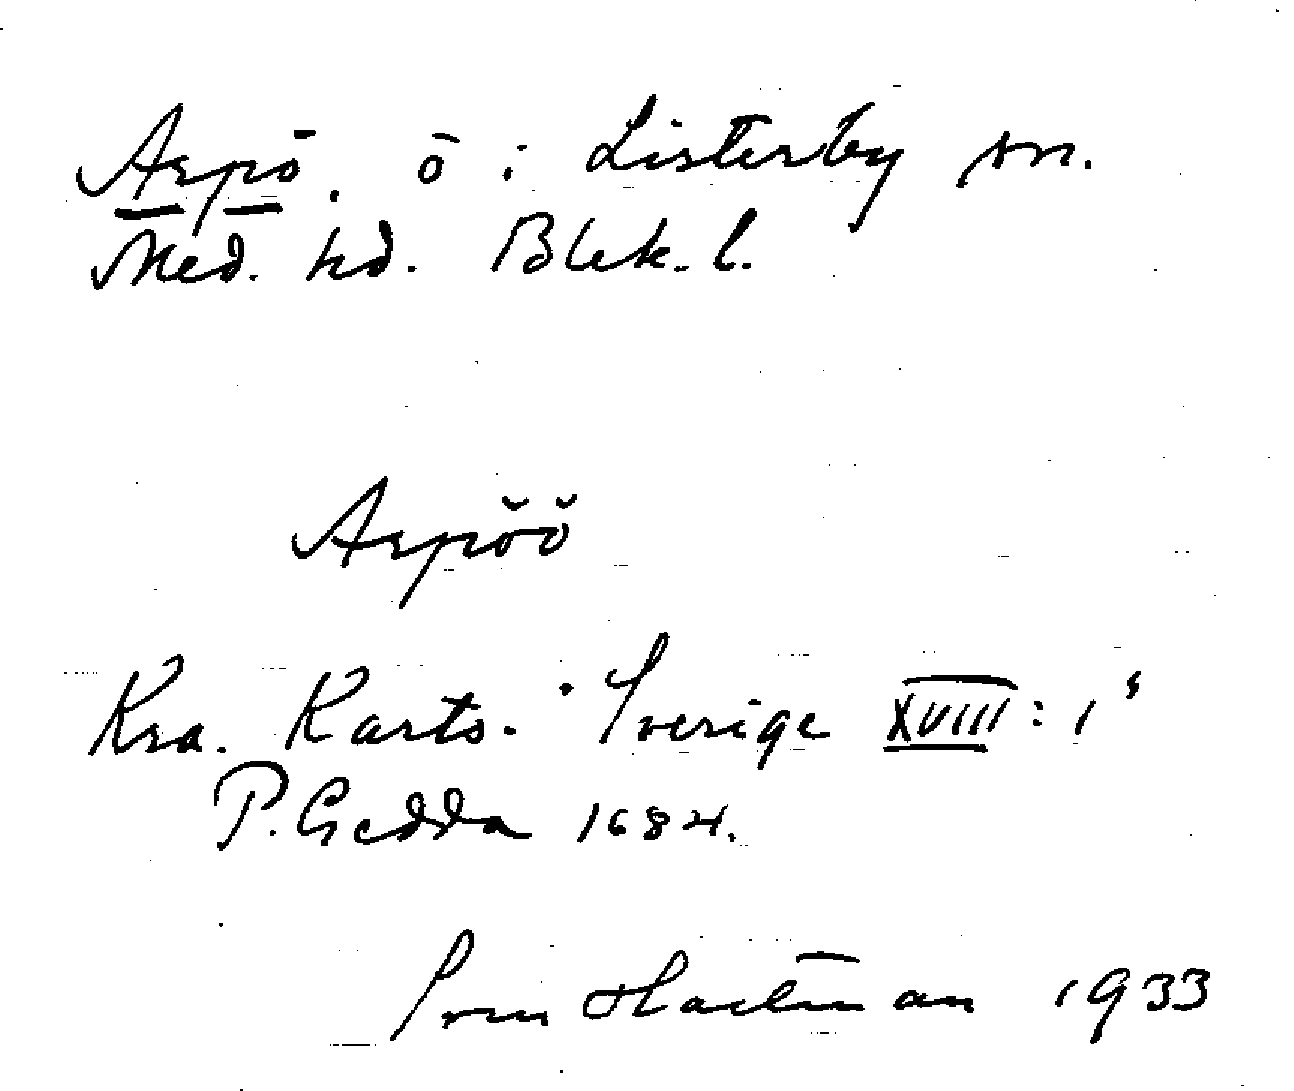 Arpö. ö i Listerby sn.
Med. hd. Blek. l.
Arpöö
Kra. Karts. Sverige XVIII: 1
P. Gedda 1684.
Sven Hartman 1933